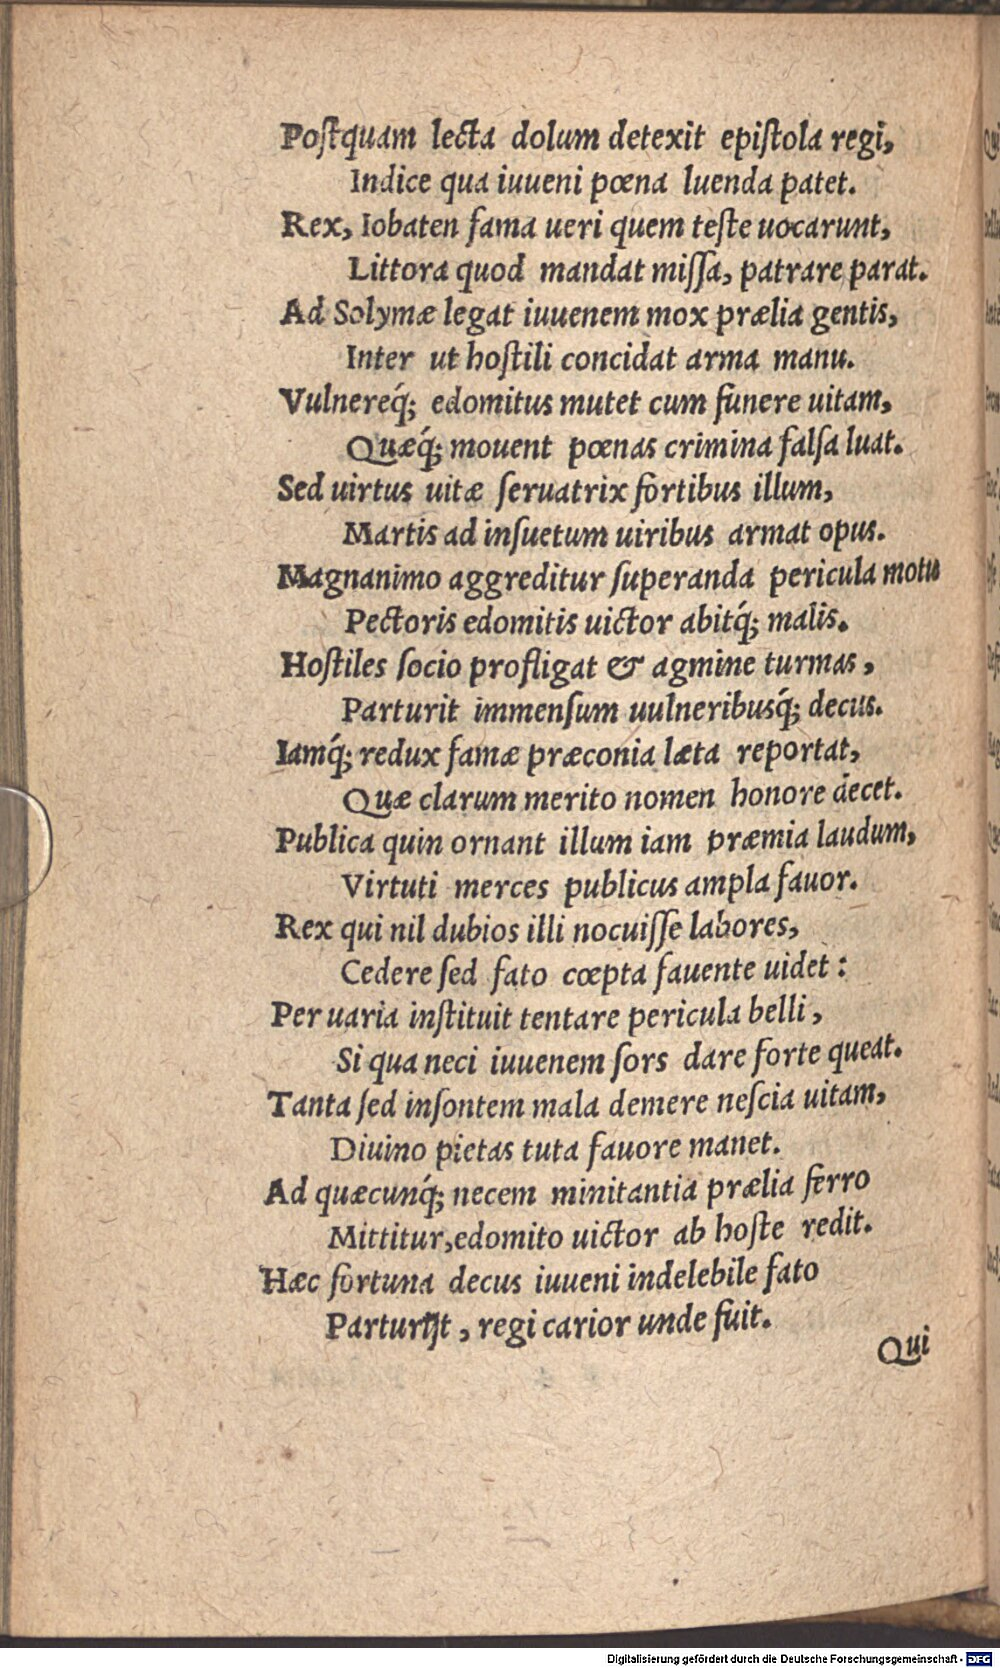 Poſtquam lecta dolum detexit epiſtola regi,
Indice qua iuueni pœna luenda patet.
Rex, Iobaten fama ueri quem teſte uocarunt,
Littora quod mandat miſſa, patrare parat.
Ad Solymæ legat iuuenem mox prælia gentis,
Inter ut hoſtili concidat arma manu.
Vulnereq́; edomitus mutet cum funere uitam,
Quæq́; mouent pœnas crimina falſa luat.
Sed uirtus uitæ ſeruatrix fortibus illum,
Martis ad inſuetum uiribus armat opus.
Magnanimo aggreditur ſuperanda pericula motu
Pectoris edomitis uictor abitq́; malis.
Hoſtiles ſocio profligat & agmine turmas,
Parturit immenſum uulneribusq́; decus.
Iamq́; redux famæ præconia læta reportat,
Quæ clarum merito nomen honore decet.
Publica quin ornant illum iam præmia laudum,
Virtuti merces publicus ampla fauor.
Rex qui nil dubios illi nocuiſſe labores,
Cedere ſed fato cœpta fauente uidet:
Per uaria inſtituit tentare pericula belli,
Si qua neci iuuenem ſors dare forte queat.
Tanta ſed inſontem mala demere neſcia uitam,
Diuino pietas tuta fauore manet.
Ad quæcunq́; necem minitantia prælia ferro
Mittitur, edomito uictor ab hoſte redit.
Hæc fortuna decus iuueni indelebile fato
Parturijt, regi carior unde fuit.
Qui
Digitalisierung gefördert durch die Deutsche Forschungsgemeinschaft - DFG